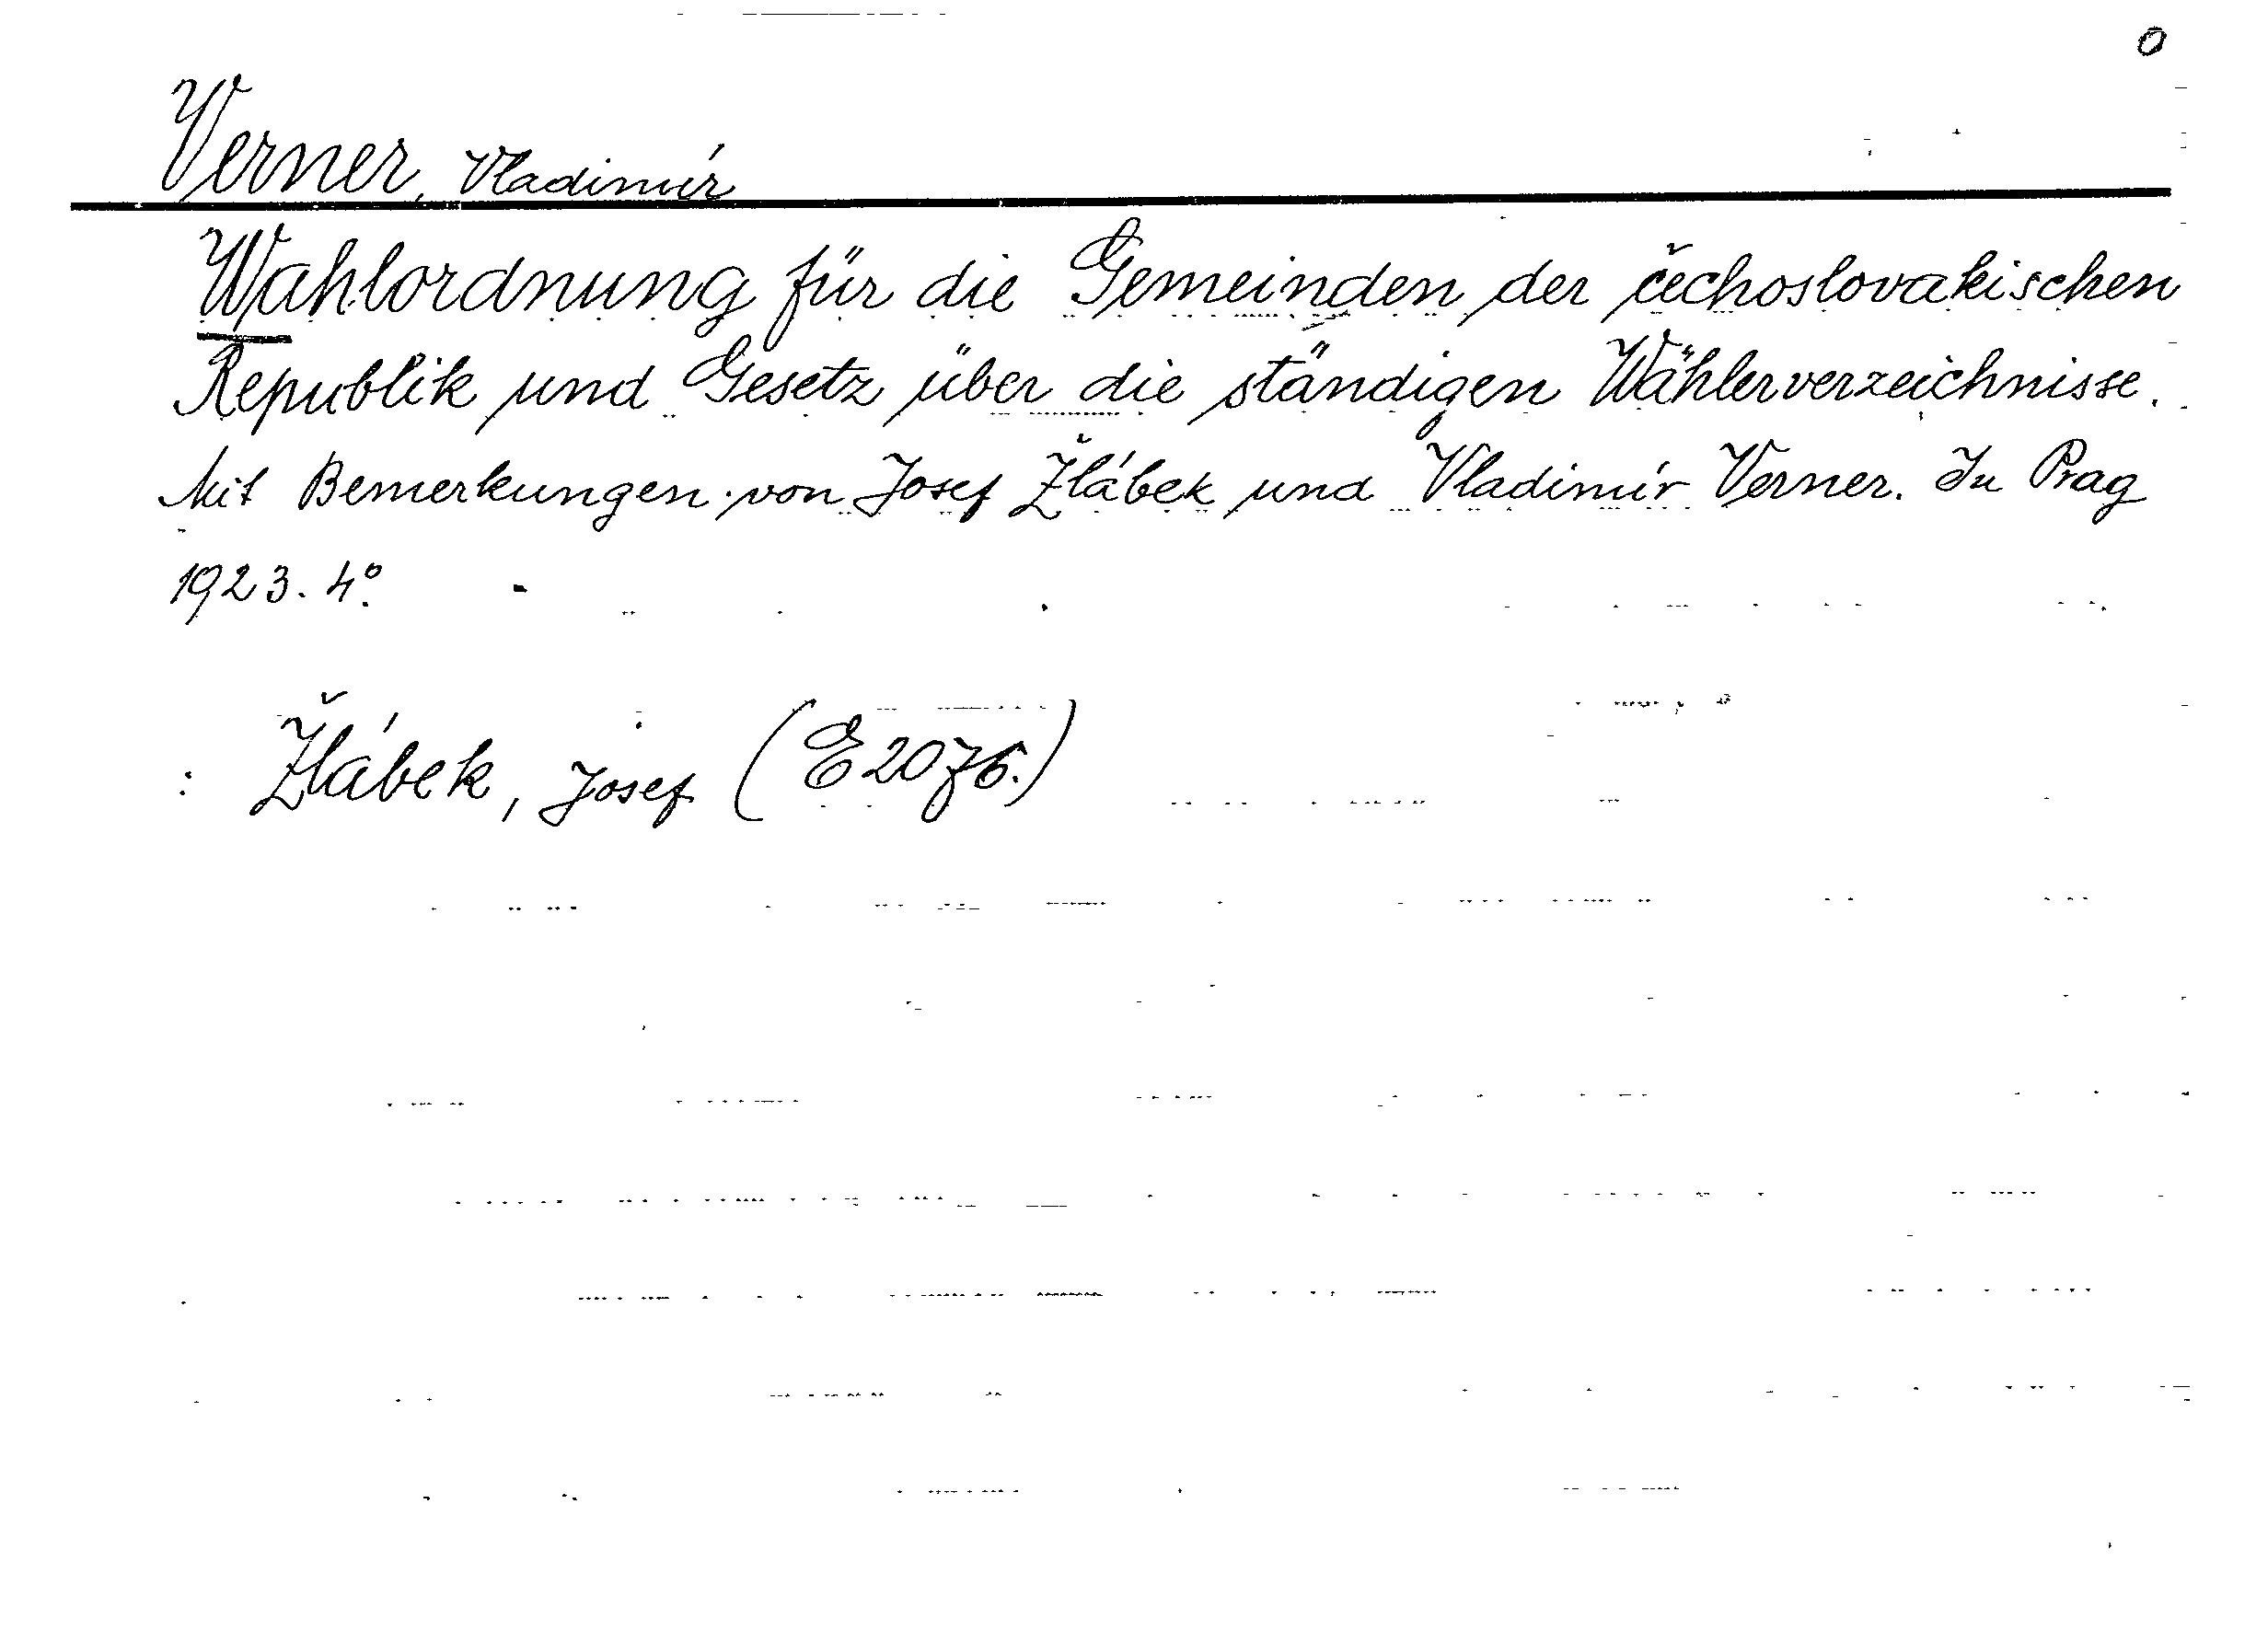 0
Verner, Vladimír
Wahlordnung für die Gemeinden der čechoslovakischen
Republik und Gesetz über die ständigen Wählerverzeichnisse.
Mit Bemerkungen von Josef Žlábek und Vladimír Verner. In Prag
1923. 4°.
: Žlábek, Josef (E 2076.)